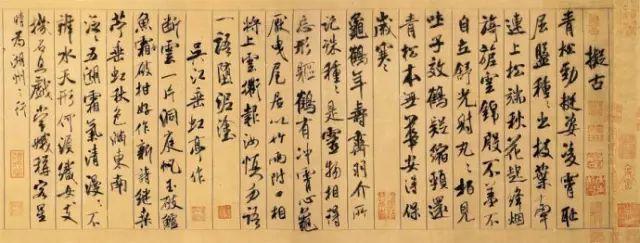 擬古
青松勁挺姿凌霄恥
屈盤種種出枝葉牽
連上松端秋花起絳烟
旖旎雲錦殷不羞不
自立舒光射丸丸柏見
吐子效鶴疑縮頸還
青松本無華安得保
歲寒
龜鶴年壽齊羽介所
託殊種種是靈物相得
忘形軀鶴有沖霄心龜
厭曳尾居以竹兩附口相
將上雲衢報汝慎勿語
一語墮泥塗
吳江垂虹亭作
斷雲一片洞庭帆玉破鱸
魚霜破柑好作新詩繼桑
苧垂虹秋色滿東南
泛泛五湖霜氣清漫漫不
辨水天形何須織女支
機石且戲常娥稱客星
時為湖州之行